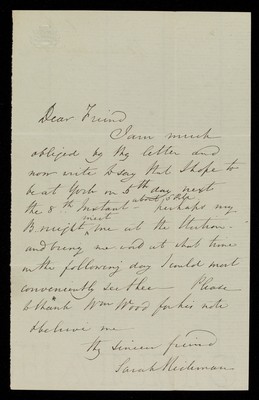 Dear Friend
I am much
obliged by thy letter and
now write to say that I hope to
be at York on 5th day next
about 5 P.M.
the 8th Instant - perhaps my
meet
B. might me at the Station -
and bring me word at what time
on the following day I could most
conveniently see thee Please
to thank Wm Wood for his note
& believe me
thy sincere friend
Sarah